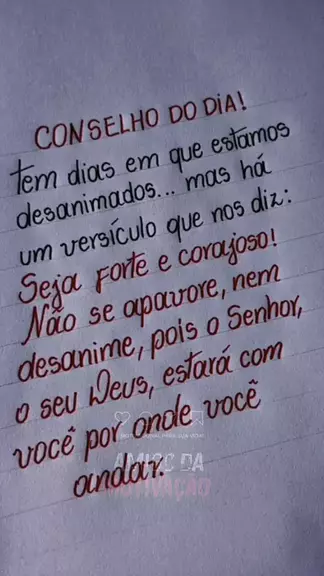 CONSELHO DO DIA!
Tem dias em que estamos
desanimados... mas há
um versículo que nos diz:
Seja Forte e corajoso!
Não se apavore, nem
desanime, pois o Senhor,
o seu Deus, estará com
você por onde você
andar.
AMIGO DA
MOTIVAÇÃO